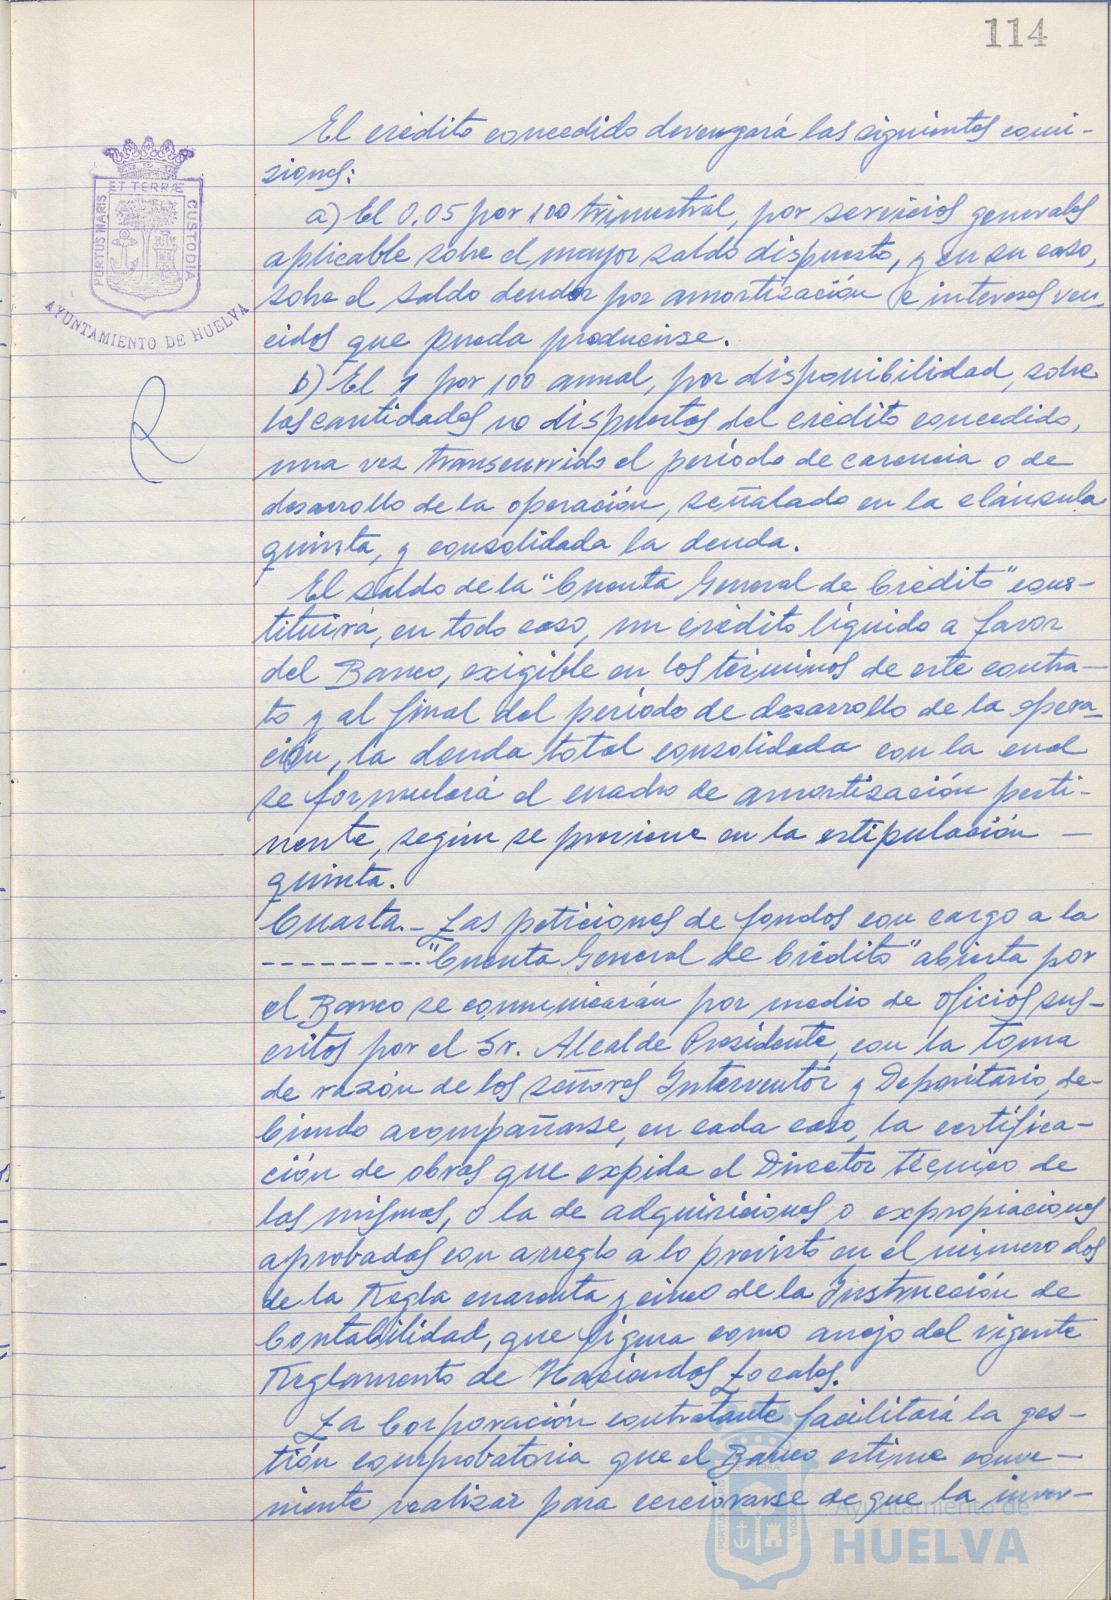 114
El crédito concedido devengará las siguientes comi-
siones:
a) El 0,05 por 100 trimestral, por servicios generales
aplicable sobre el mayor saldo dispuesto, y en su caso,
sobre el saldo deudor por amortización e intereses ven-
cidos que pueda producirse.
b) El 1 por 100 anual, por disponibilidad, sobre
las cantidades no dispuestas del crédito concedido,
una vez transcurrido el período de carencia o de
desarrollo de la operación, señalado en la cláusula
quinta, y consolidada la deuda.
El saldo de la "Cuenta General de Crédito" cons-
tituirá, en todo caso, un crédito líquido a favor
del Banco, exigible en los términos de este contra-
to y al final del período de desarrollo de la opera-
ción, la deuda total consolidada con la cual
se formulará el cuadro de amortización perti-
nente, según se previene en la estipulación —
quinta.
Cuarta.- Las peticiones de fondos con cargo a la
---------"Cuenta General de Crédito" abierta por
el Banco se comunicarán por medio de oficios sus-
critos por el Sr. Alcalde Presidente, con la toma
de razón de los señores Interventor y Depositario, de-
biendo acompañarse, en cada caso, la certifica-
ción de obras que expida el Director técnico de
las mismas, o la de adquisiciones o expropiaciones
aprobadas con arreglo a lo previsto en el número dos
de la Regla cuarenta y cinco de la Instrucción de
Contabilidad, que figura como anejo del vigente
Reglamento de Haciendas Locales.
La Corporación contratante facilitará la ges-
tión comprobatoria que el Banco estime conve-
niente realizar para cerciorarse de que la inver-
PORTUS MARIS
ET TERRÆ
CUSTODIA
AYUNTAMIENTO DE HUELVA
Ayuntamiento de
HUELVA